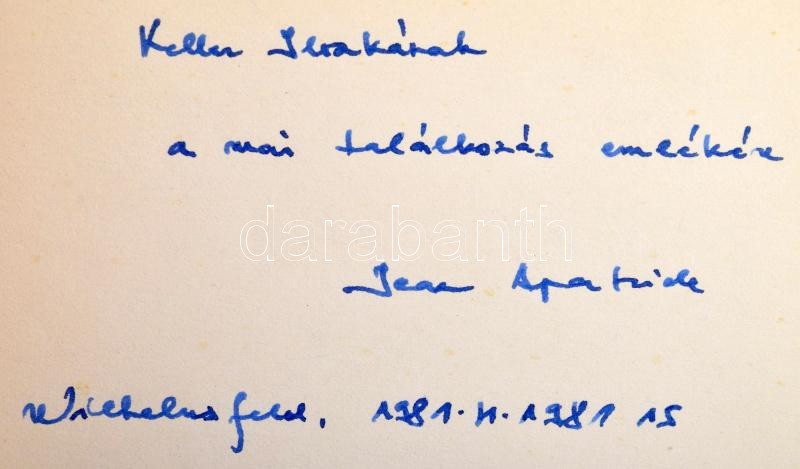 Keller Ilrakának
a mai találkozás emlékére
darabanth
Jean Apatride
Wilhelmsfeld, 1981. II. 1981 15